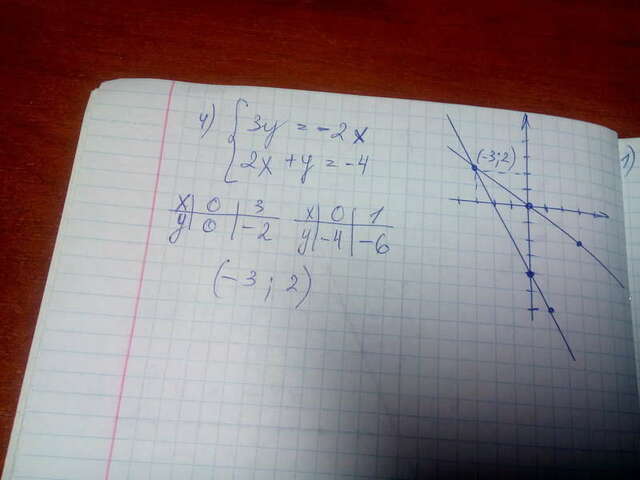 4) { 3y = -2x
2x + y = -4
x | 0 | 3
y | 0 | -2
x | 0 | 1
y | -4 | -6
(-3 ; 2)
(-3;2)
1)